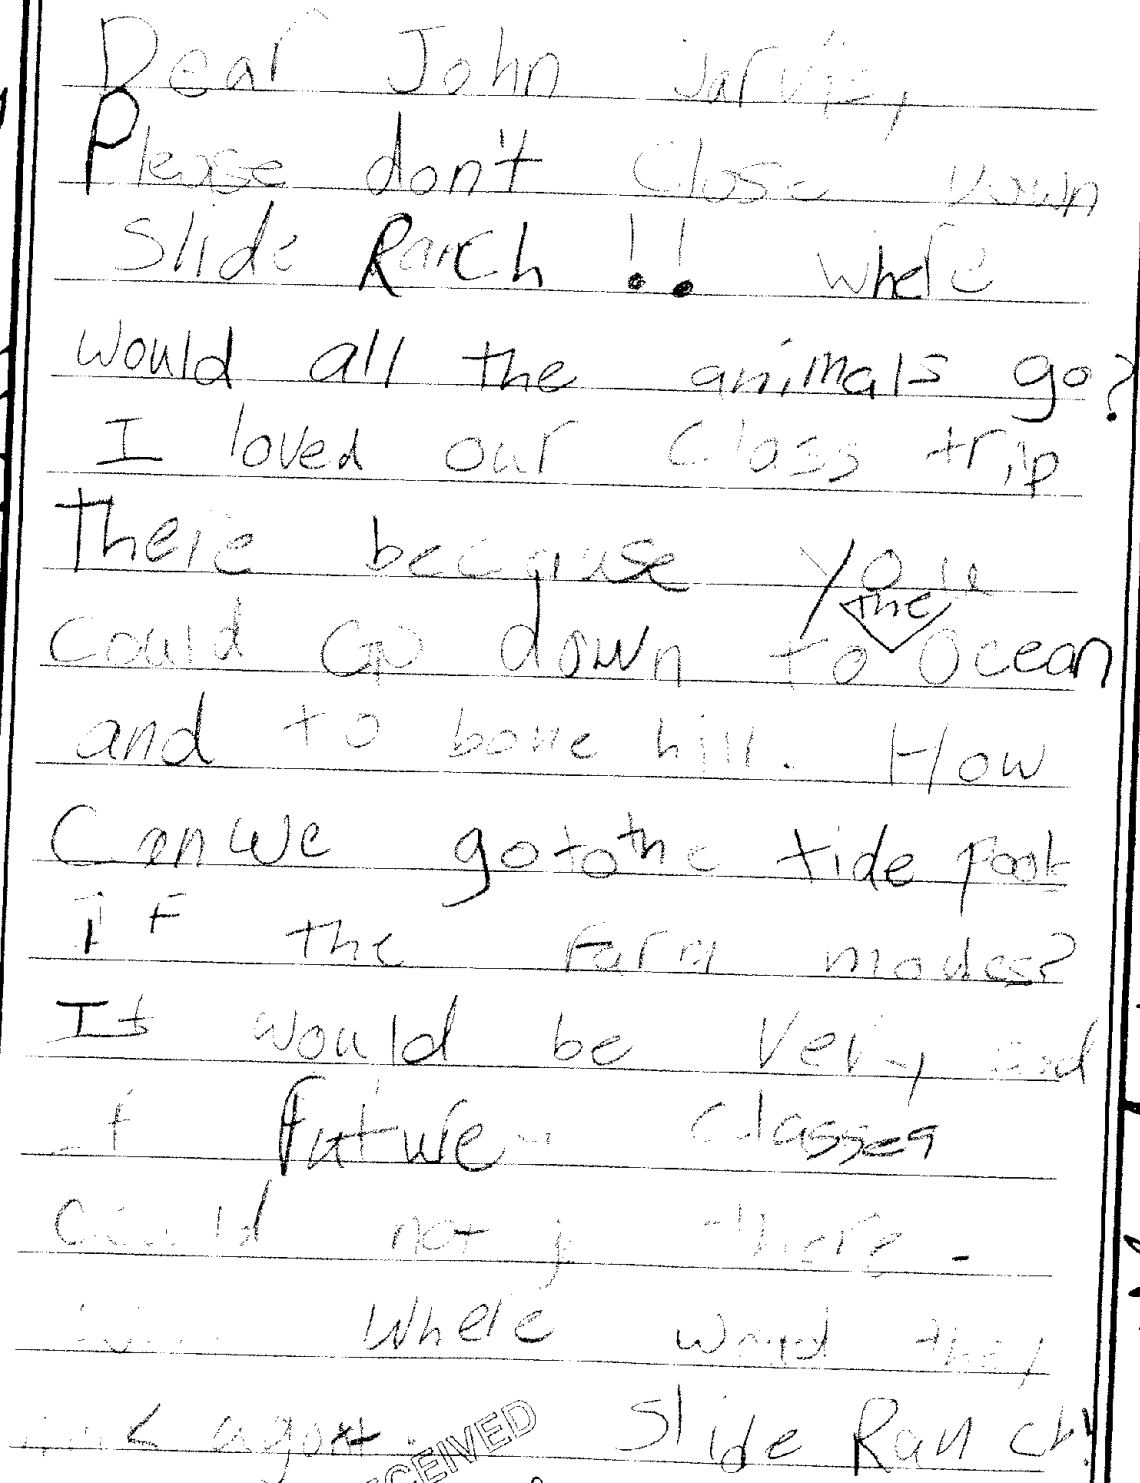 Dear John Jarvis,
Please don't close down
Slide Ranch !! where
would all the animals go?
I loved our class trip
there because you
the
could go down to ocean
and to bone hill. How
can we go to the tide pools
If the farm moves?
It would be very sad
if future classes
could not go there.
Where would they
a goat. Slide Ranch!
RECEIVED